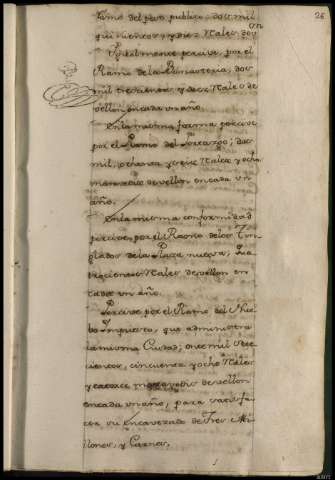 26
Ramo del peso publico, dos mil
quinientos y diez Rales, von
Igualmente percive, por el
Ramo de la Panaderia, dos
mil trescientos, y diez Rales de
vellon en cada un año.
En la misma forma percive
por el Ramo del Portazgo; dos
mil, ochenta y seis Rales, y ocho
maravedis de vellon en cada un
año.
En la misma conformidad
percive, por el Ramo de los Tin
glados de la Plaza nueva,
trocientos Rales de vellon en
cada un año.
Percive por el Ramo del Nue
bo Impuesto, que administra
la misma Ciudad; once mil
cientos, cincuenta y ocho Rales
y catorce maravedis de vellon
en cada un año, para satisfa
cer su Encavezado de Tres Mi
llones, y Carnes,